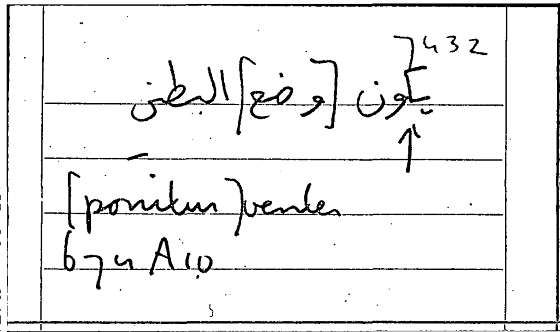 432
يكون [وضع] البطن
[ponitur] venter
674 A10